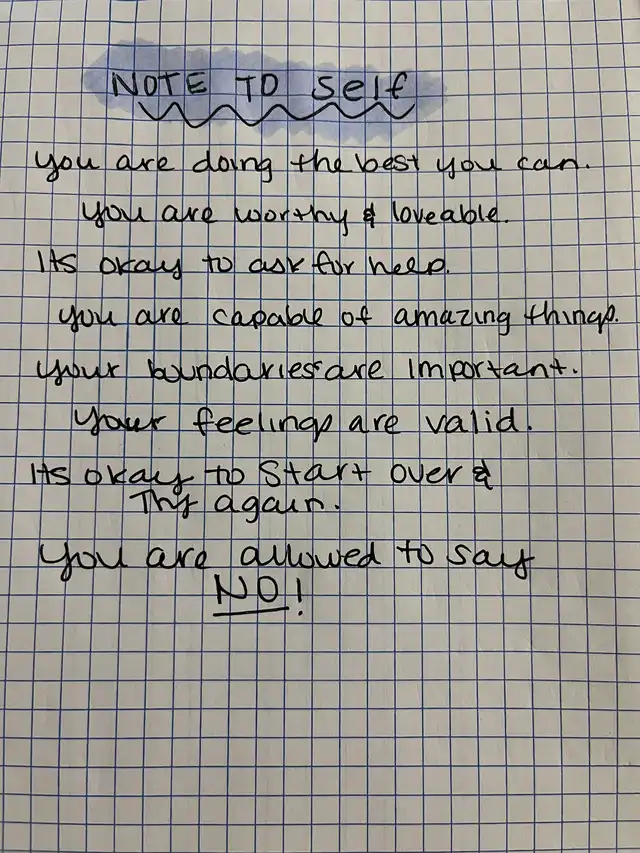 NOTE TO Self
you are doing the best you can.
you are worthy & loveable.
Its okay to ask for help.
you are capable of amazing things.
your boundaries are important.
your feelings are valid.
Its okay to start over &
Try again.
you are allowed to say
NO!